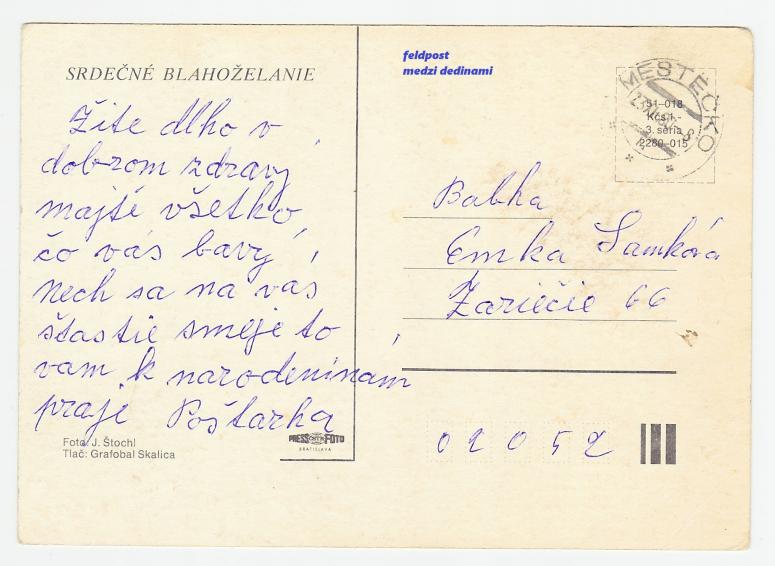 SRDEČNÉ BLAHOŽELANIE
Žite dlho v
dobrom zdravý
majte všetko,
čo vás bavý,
Nech sa na vás
štastie smeje to
vam k narodeninám
praje Poštarka
Foto: J. Štochl
Tlač: Grafobal Skalica
PRESSFOTO
BRATISLAVA
feldpost
medzi dedinami
MESTEČKO
51–018
Kčs 1,-
3. séria
2280–015
Babka
Emka Samková
Zariečie 66
02052